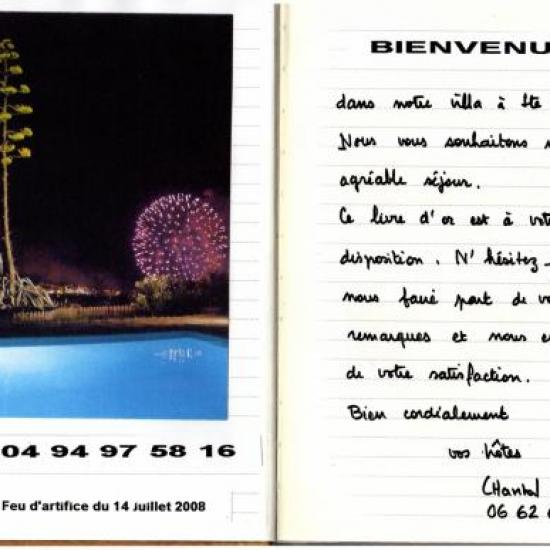 04 94 97 58 16
Feu d'artifice du 14 Juillet 2008
BIENVENU
dans notre villa à Ste
Nous vous souhaitons
agréable séjour.
Ce livre d'or est à vot
disposition. N'hésitez-
nous faire part de vo
remarques et nous
de votre satisfaction.
Bien cordialement
vos hôtes
CHantal
06 62